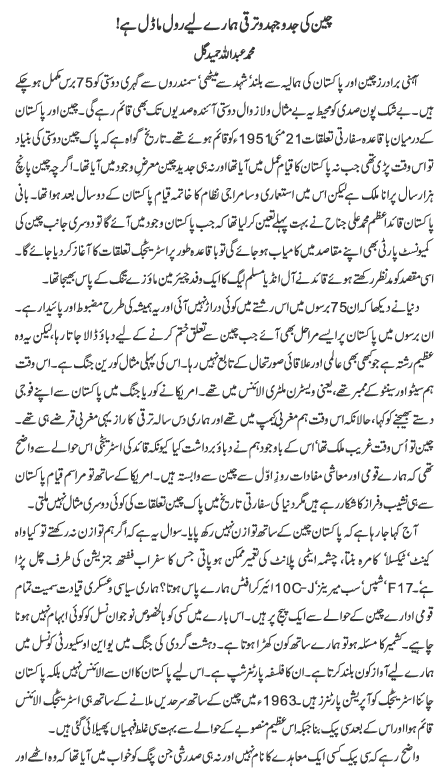 چین کی جدوجہد و ترقی ہمارے لیے رول ماڈل ہے!
محمد عبداللہ حمید گل
آہنی برادرز چین اور پاکستان کی ہمالیہ سے بلند، شہد سے میٹھی، سمندروں سے گہری دوستی کو 75 برس مکمل ہو چکے
ہیں۔ بے شک پون صدی کو محیط یہ بے مثال و لازوال دوستی آئندہ صدیوں تک بھی قائم رہے گی۔ چین اور پاکستان
کے درمیان باقاعدہ سفارتی تعلقات 21 مئی 1951ء کو قائم ہوئے تھے۔ تاریخ گواہ ہے کہ پاک چین دوستی کی بنیاد
تو اس وقت پڑی تھی جب نہ پاکستان کا قیام عمل میں آیا تھا اور نہ ہی جدید چین معرضِ وجود میں آیا تھا۔ اگرچہ چین پانچ
ہزار سال پرانا ملک ہے لیکن اس میں استعماری و سامراجی نظام کا خاتمہ قیام پاکستان کے دو سال بعد ہوا تھا۔ بانی
پاکستان قائداعظم محمد علی جناح نے بہت پہلے تعین کر لیا تھا کہ جب پاکستان وجود میں آئے گا تو دوسری جانب چین کی
کمیونسٹ پارٹی بھی اپنے مقاصد میں کامیاب ہو جائے گی تو باقاعدہ طور پر اسٹرٹیجک تعلقات کا آغاز کر دیا جائے گا۔
اسی مقصد کو مدنظر رکھتے ہوئے قائد نے آل انڈیا مسلم لیگ کا ایک وفد چیئرمین ماؤزے تنگ کے پاس بھیجا تھا۔
دنیا نے دیکھا کہ ان 75 برسوں میں اس رشتے میں کوئی دراڑ نہیں آئی اور یہ ہمیشہ کی طرح مضبوط اور پائیدار ہے۔
ان برسوں میں پاکستان پر ایسے مراحل بھی آئے جب چین سے تعلق ختم کرنے کے لیے دباؤ ڈالا جاتا رہا، لیکن یہ وہ
عظیم رشتہ ہے جو کبھی بھی عالمی اور علاقائی صورتحال کے تابع نہیں رہا۔ اس کی پہلی مثال کورین جنگ ہے۔ اس وقت ہم
ہم سیٹو اور سینٹو کے ممبر تھے، یعنی ویسٹرن ملٹری الائنس میں تھے۔ امریکا نے کوریا جنگ میں پاکستان سے اپنے فوجی
دستے بھیجنے کو کہا، حالانکہ اس وقت ہم مغربی کیمپ میں تھے اور ہماری دس سالہ ترقی کا راز یہی مغربی قرضے ہی تھے۔
چین تو اُس وقت غریب ملک تھا، اس کے باوجود ہم نے دباؤ برداشت کیا کیونکہ قائد کی اسٹرٹیجی اس حوالے سے واضح
تھی کہ ہمارے قومی اور معاشی مفادات روزِ اوّل سے چین سے وابستہ ہیں۔ امریکا کے ساتھ تو مراسم قیام پاکستان
سے ہی نشیب و فراز کا شکار رہے ہیں مگر دنیا کی سفارتی تاریخ میں پاک چین تعلقات کی کوئی دوسری مثال نہیں ملتی۔
آج کہا جا رہا ہے کہ پاکستان چین کے ساتھ توازن نہیں رکھ پایا۔ سوال یہ ہے کہ اگر ہم توازن نہ رکھتے تو کیا واہ
کینٹ، ٹیکسلا، کامرہ بنتا، چشمہ ایٹمی پلانٹ کی تعمیر ممکن ہو پاتی جس کا سفر اب ففتھ جنریشن کی طرف چل پڑا
ہے، F17، شپس، سب میرینز، جے-10C ائیر کرافٹ ہمارے پاس ہوتا؟ ہماری سیاسی و عسکری قیادت سمیت تمام
قومی ادارے چین کے حوالے سے ایک پیج پر ہیں۔ اس بارے میں کسی کو بالخصوص نوجوان نسل کو کوئی ابہام نہیں ہونا
چاہیے۔ کشمیر کا مسئلہ ہو تو ہمارے ساتھ کون کھڑا ہوتا ہے۔ دہشت گردی کی جنگ میں یو این او سکیورٹی کونسل میں
ہمارے لیے آواز کون بلند کرتا ہے۔ ان کا فلسفہ پارٹنر شپ ہے۔ اس لیے پاکستان کا ان سے الائنس نہیں بلکہ پاکستان
چائنا اسٹرٹیجک کو آپریشن پارٹنرز ہیں۔ 1963ء میں چین کے ساتھ سرحدیں ملانے کے ساتھ ہی اسٹرٹیجک الائنس
قائم ہوا اور اس کے بعد سی پیک بنا جبکہ اس عظیم منصوبے کے حوالے سے بہت سی غلط فہمیاں پھیلائی گئی ہیں۔
واضح رہے کہ سی پیک کسی ایک معاہدے کا نام نہیں اور نہ ہی صدر شی جن پنگ کو خواب میں آیا تھا کہ وہ اٹھے اور